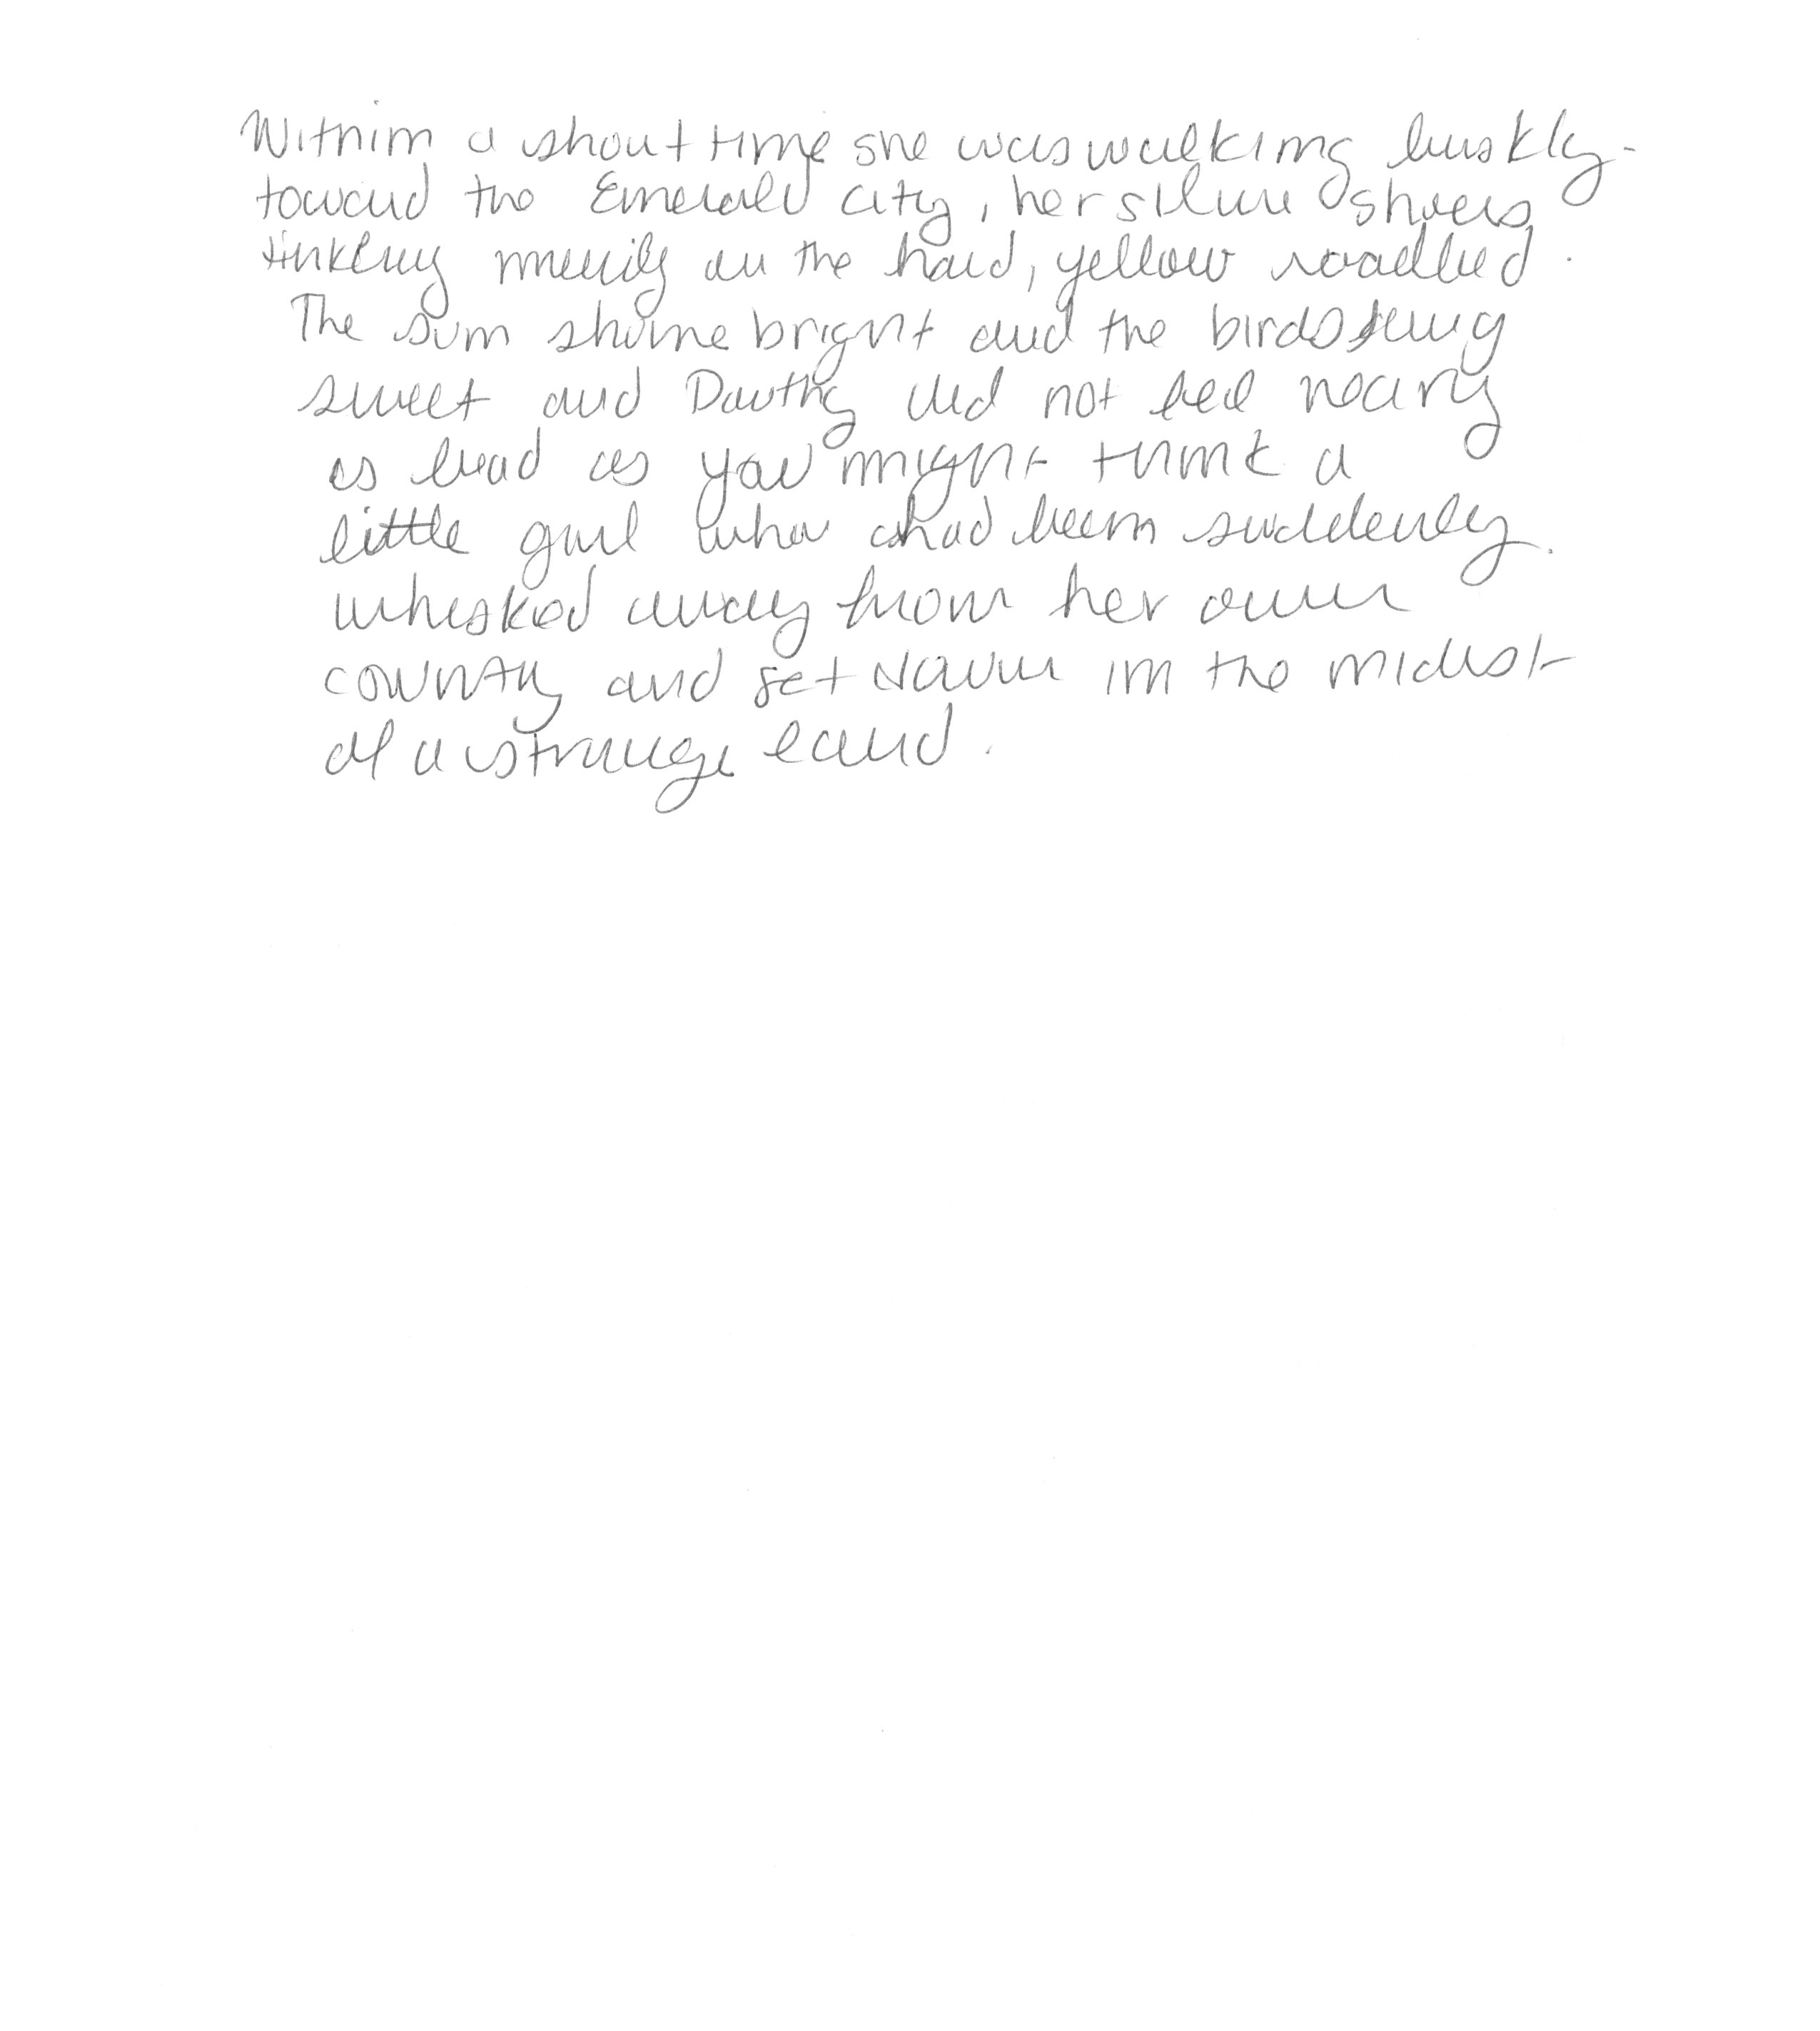 Within a short time she was walking briskly
toward the Emerald City, her silver shoes
tinkling merrily on the hard, yellow roadbed.
The sun shone bright and the birds sung
sweet and Dorothy did not feel nearly
as bad as you might think a
little girl who had been suddenly
whisked away from her own
country and set down in the midst
of a strange land.